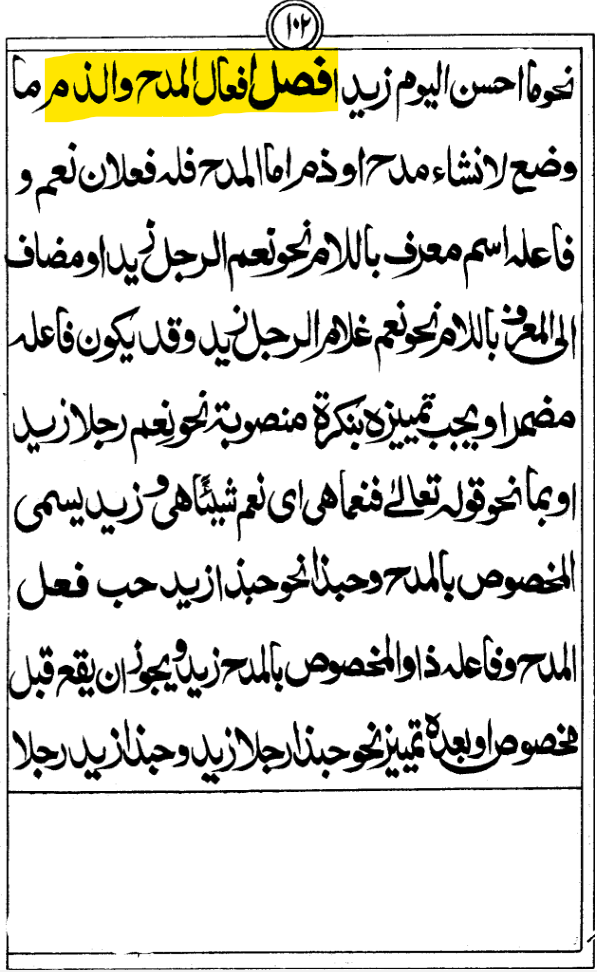 ١٠٢
نحو ما احسن اليوم زيدا فصل افعال المدح والذم ما
وضع لانشاء مدح او ذم اما المدح فله فعلان نعم و
فاعله اسم معرف باللام نحو نعم الرجل زيد او مضاف
الى المعرف باللام نحو نعم غلام الرجل زيد وقد يكون فاعله
مضمرا ويجب تمييزه بنكرة منصوبة نحو نِعم رجلا زيد
او بما نحو قوله تعالىٰ فنعما هى اى نعم شيئًا هى و زيد يسمى
المخصوص بالمدح وحبذا نحو حبذا زيد حب فعل
المدح وفاعله ذا والمخصوص بالمدح زيد ويجوز ان يقع قبل
مخصوص او بعده تمييز نحو حبذا رجلا زيد وحبذا زيد رجلا